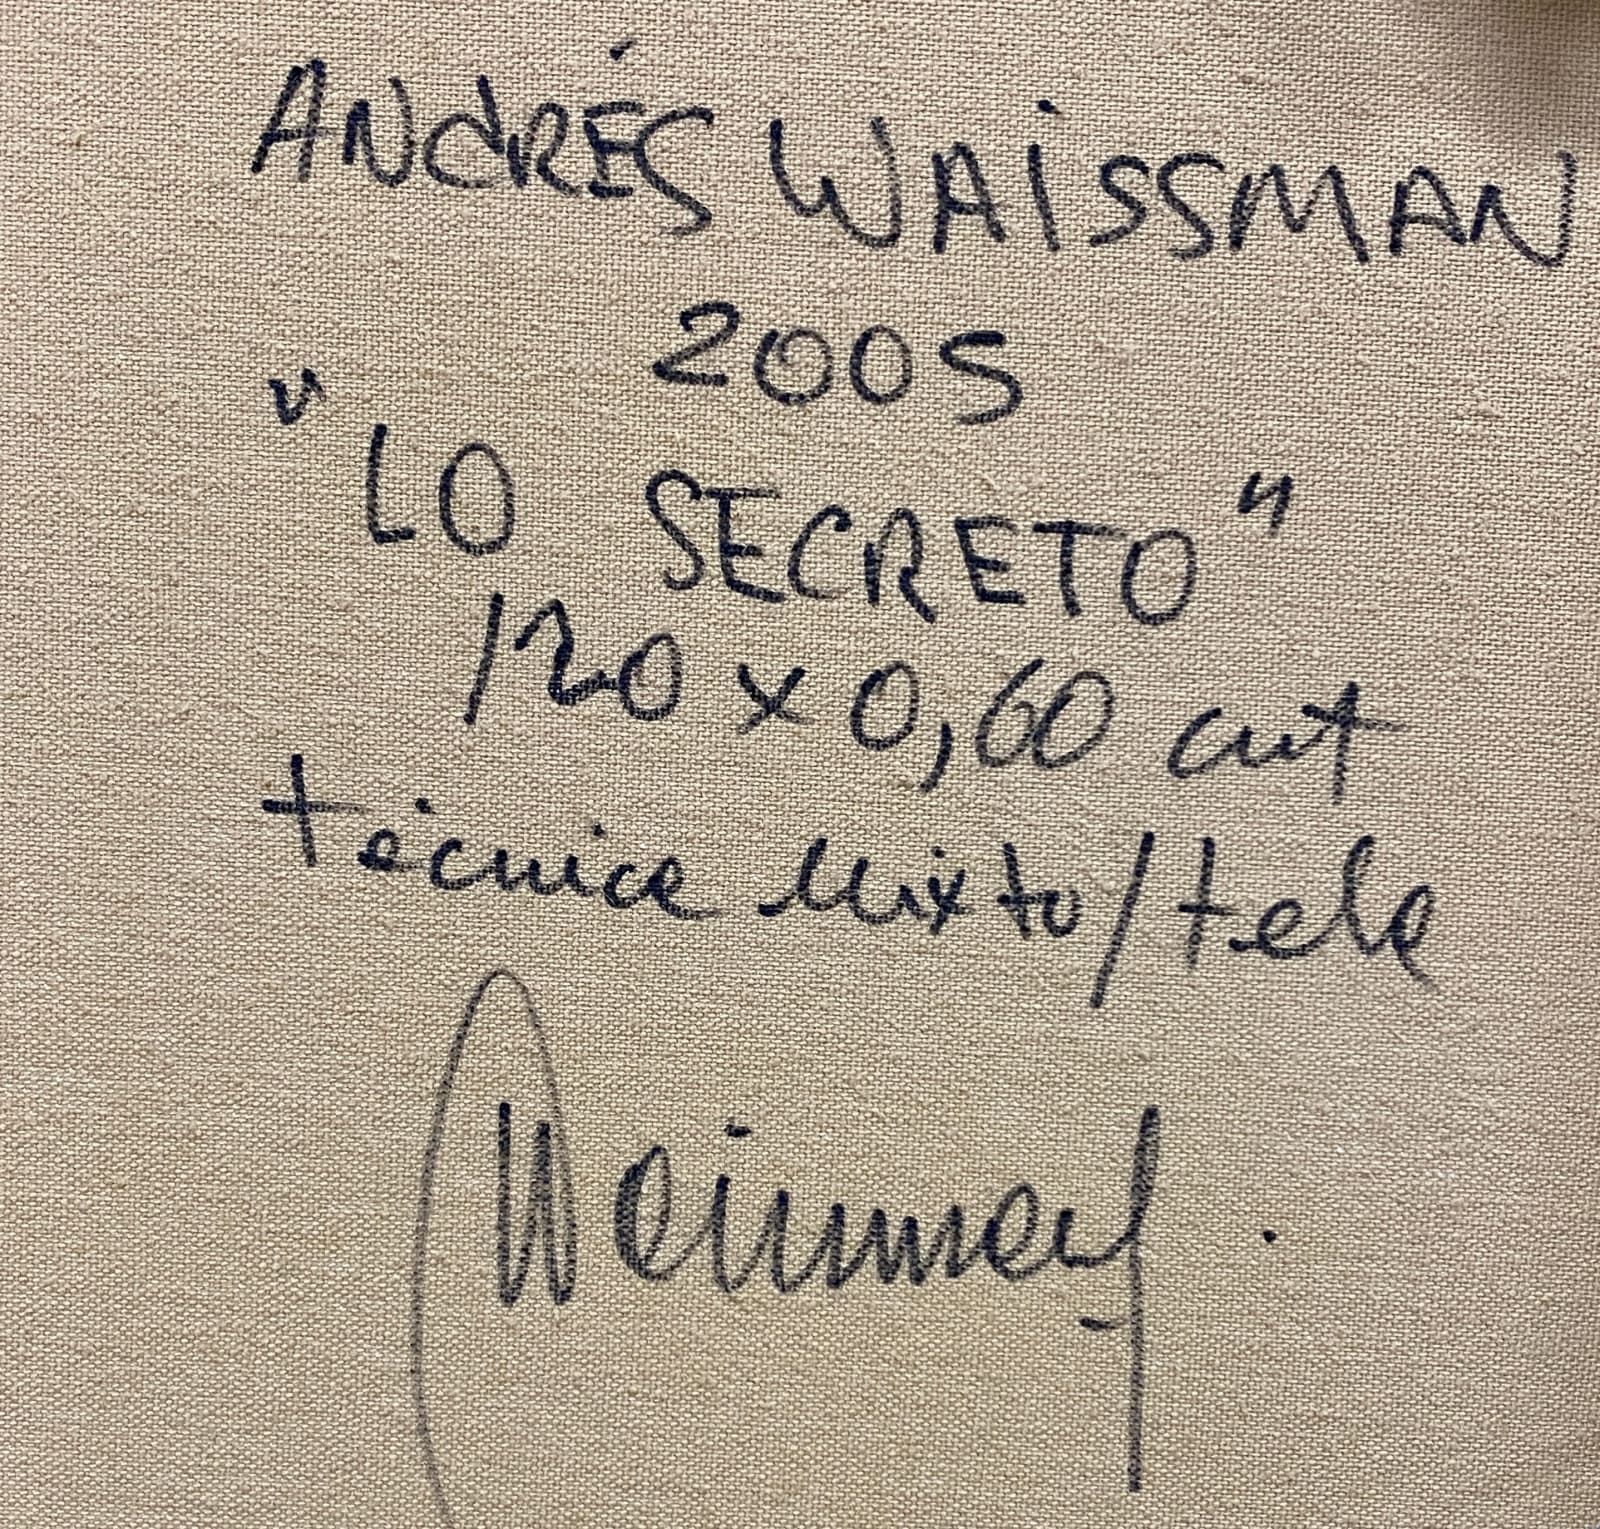 ANdRÉS WAiSSMAN
2005
"LO SECRETO"
120 x 0,60 cmt
técnica mixta/tela